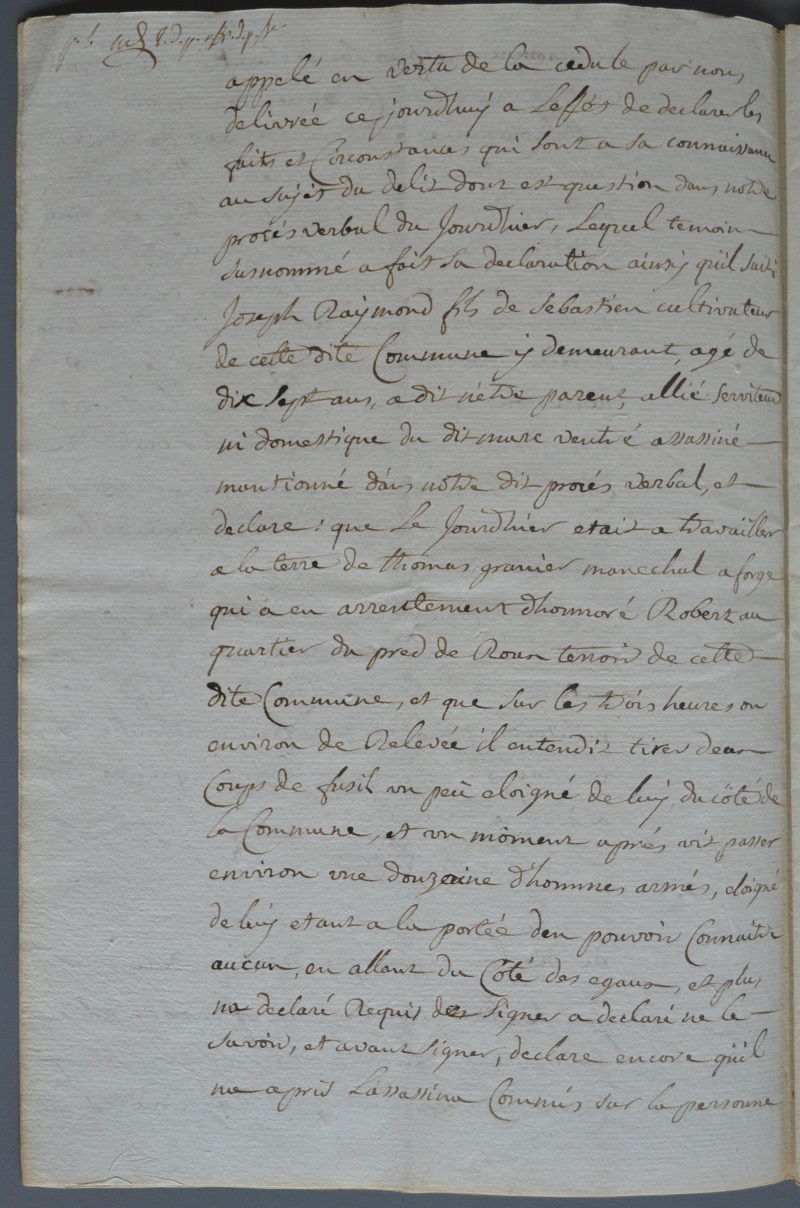 appelé en vertu de la cedule par nous
delivréé ce jourdhuy a Leffét de declarer les
faits et Circonstances qui sont a sa connaissance
au sujét du delit dont est question dans notre
procés verbal du Jourdhier, Lequel temoin
susnommé a fait sa declaration ainsy quil suit;
Joseph Raÿmond fils de sebastien cultivateur
de cette dite Commune y demeurant, agé de
dix sept ans, a dit nétre parent, allié serviteur
ni domestique du dit marc ventré assassiné
mantionné dans notre dit procés verbal, et
declare: que Le Jourdhier etait a travailler
a la terre de thomas granier marechal a forge
qui a en arrentement dhonnoré Robert au
quartier du pred de Roux terroir de cette
dite Commune, et que sur les trois heures ou
environ de Relevée il entendit tirer deux
Coups de fusil un peu eloigné de luy du côté de
la Commune, et un moment aprés vit passer
environ une douzaine dhommes armés, eloigné
de luy etant a la portéé den pouvoir Connaitre
aucun, en allant du Côté des egaux, et plus
na declaré Requis de signer a declaré ne le
savoir, et avant signer, declare encore quil
na apris Lassassina Commis sur la personne